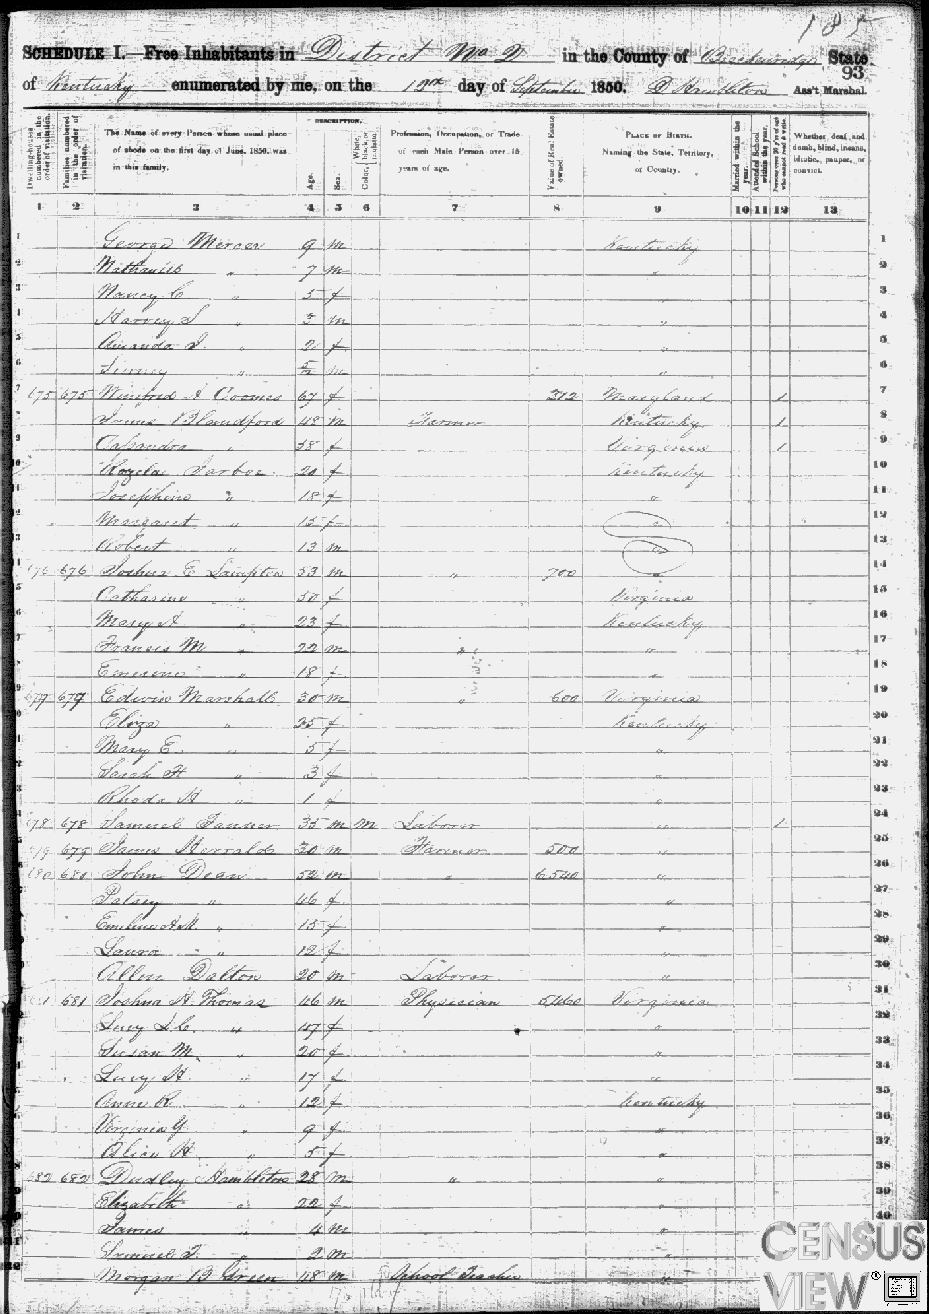 185
SCHEDULE I.—Free Inhabitants in District No 2 in the County of Breckinridge State
93
of Kentucky enumerated by me, on the day of September 1850. D Hambleton Ass't Marshal.
Dwelling-houses numbered in the order of visitation.
Families numbered in the order of visitation.
The Name of every Person whose usual place of abode on the first day of June, 1850, was in this family.
DESCRIPTION.
Age.
Sex.
Color, White, black, or mulatto.
Profession, Occupation, or Trade of each Male Person over 15 years of age.
Value of Real Estate owned.
PLACE OF BIRTH. Naming the State, Territory, or Country.
Married within the year.
Attended School within the year.
Persons over 20 y'rs of age who cannot read & write.
Whether deaf and dumb, blind, insane, idiotic, pauper, or convict.
1 2 3 4 5 6 7 8 9 10 11 12 13
1 George Mercer 9 m Kentucky 1
2 Nathaniel " 7 m " 2
3 Nancy C " 5 f " 3
4 Harvey S " 3 m " 4
5 Amanda J. " 2 f " 5
6 " m " 6
7 675 675 Winifred A Coomes 67 f 312 Maryland 1 7
8 Blandford 48 m Farmer Kentucky 1 8
9 Cassandra " 38 f Virginia 1 9
10 Rozela Tarbor 20 f Kentucky 10
11 Josephine " 18 f " 11
12 Margaret " 15 f " 12
13 Robert " 13 m " 13
14 676 676 Joshua E Lampton 53 m " 700 " 14
15 Catharine " 50 f Virginia 15
16 Mary A " 23 f Kentucky 16
17 Francis M " 22 m " " 17
18 Emerine " 18 f " 18
19 677 677 Edwin Marshall 30 m " 600 Virginia 19
20 Eliza " 25 f Kentucky 20
21 Mary E. " 5 f " 21
22 Sarah H " 3 f " 22
23 Rhoda A " 1 f " 23
24 678 678 Samuel Tanner 35 m M Laborer " 1 24
25 679 679 James Herralds 30 m Farmer 500 " 25
26 680 680 John Dean 52 m " 6540 " 26
27 Patsey " 46 f " 27
28 Emiline A.M. " 15 f " 28
29 Laura " 12 f " 29
30 Allen Dalton 20 m Laborer " 30
31 681 681 Joshua H. Thomas 46 m Physician 5460 Virginia 31
32 Lucy " 47 f " 32
33 Susan M. " 20 f " 33
34 Lucy H. " 17 f " 34
35 Anne R. " 12 f Kentucky 35
36 Virginia G. " 9 f " 36
37 Alice H. " 5 f " 37
38 682 682 Dudley Hambleton 28 m " " 38
39 Elizabeth " 22 f " 39
40 James " 4 m " 40
41 Samuel T. " 2 m "
42 Morgan B Green 18 m School Teacher "
CENSUS
VIEW®